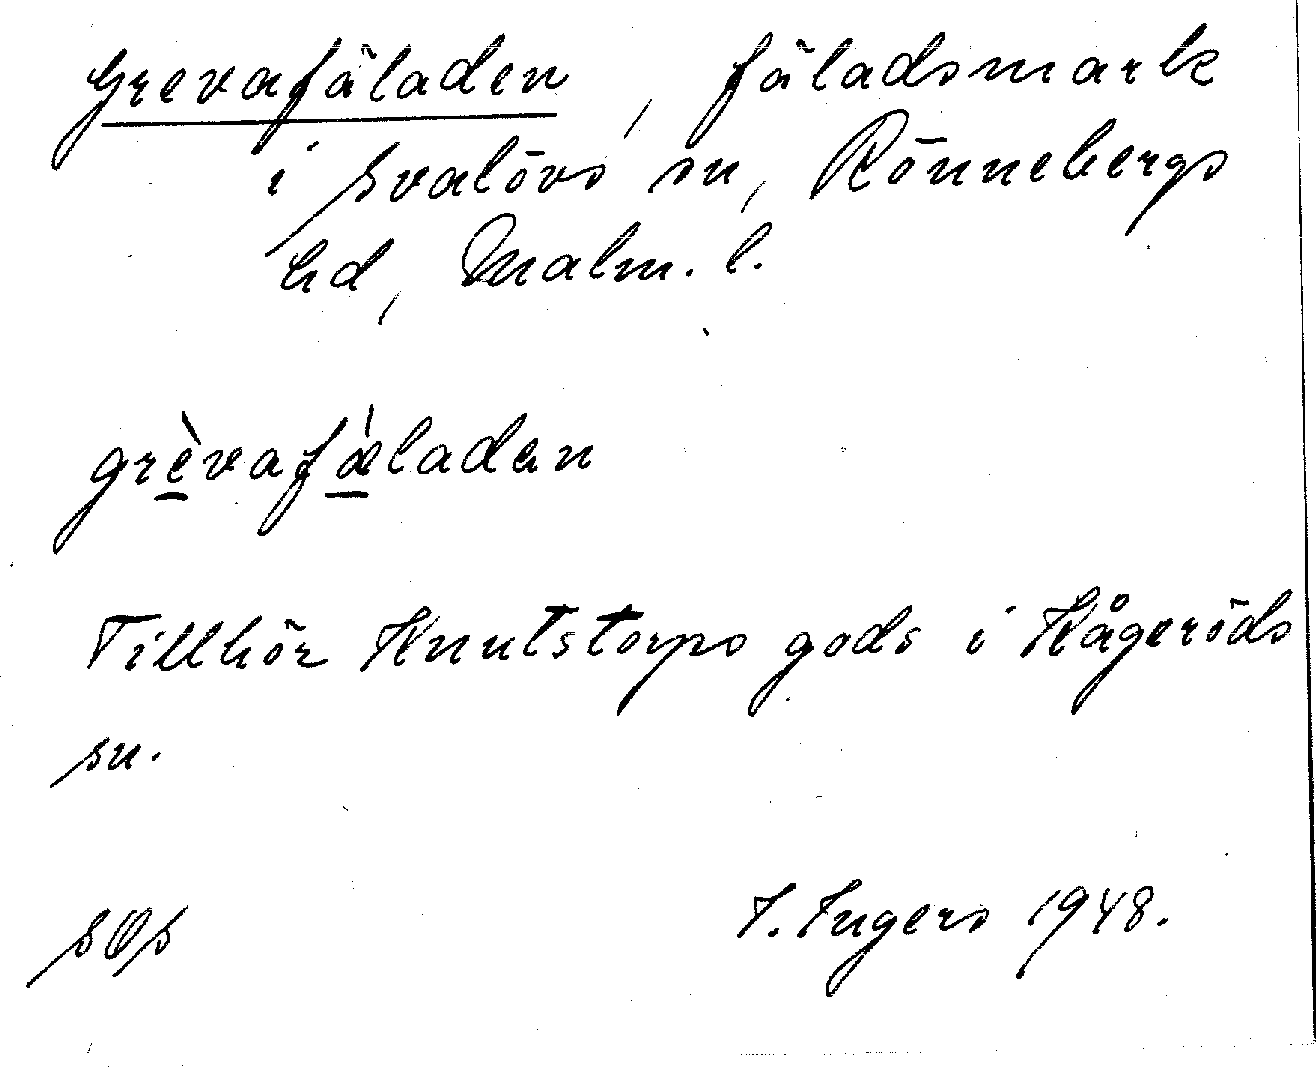 Grevafäladen, fäladsmark
i Svalövs sn, Rönnebergs
hd, Malm. l.
grèvafæ̀ladan
Tillhör Knutstorps gods i Kågeröds
sn.
SOS I. Ingers 1948.